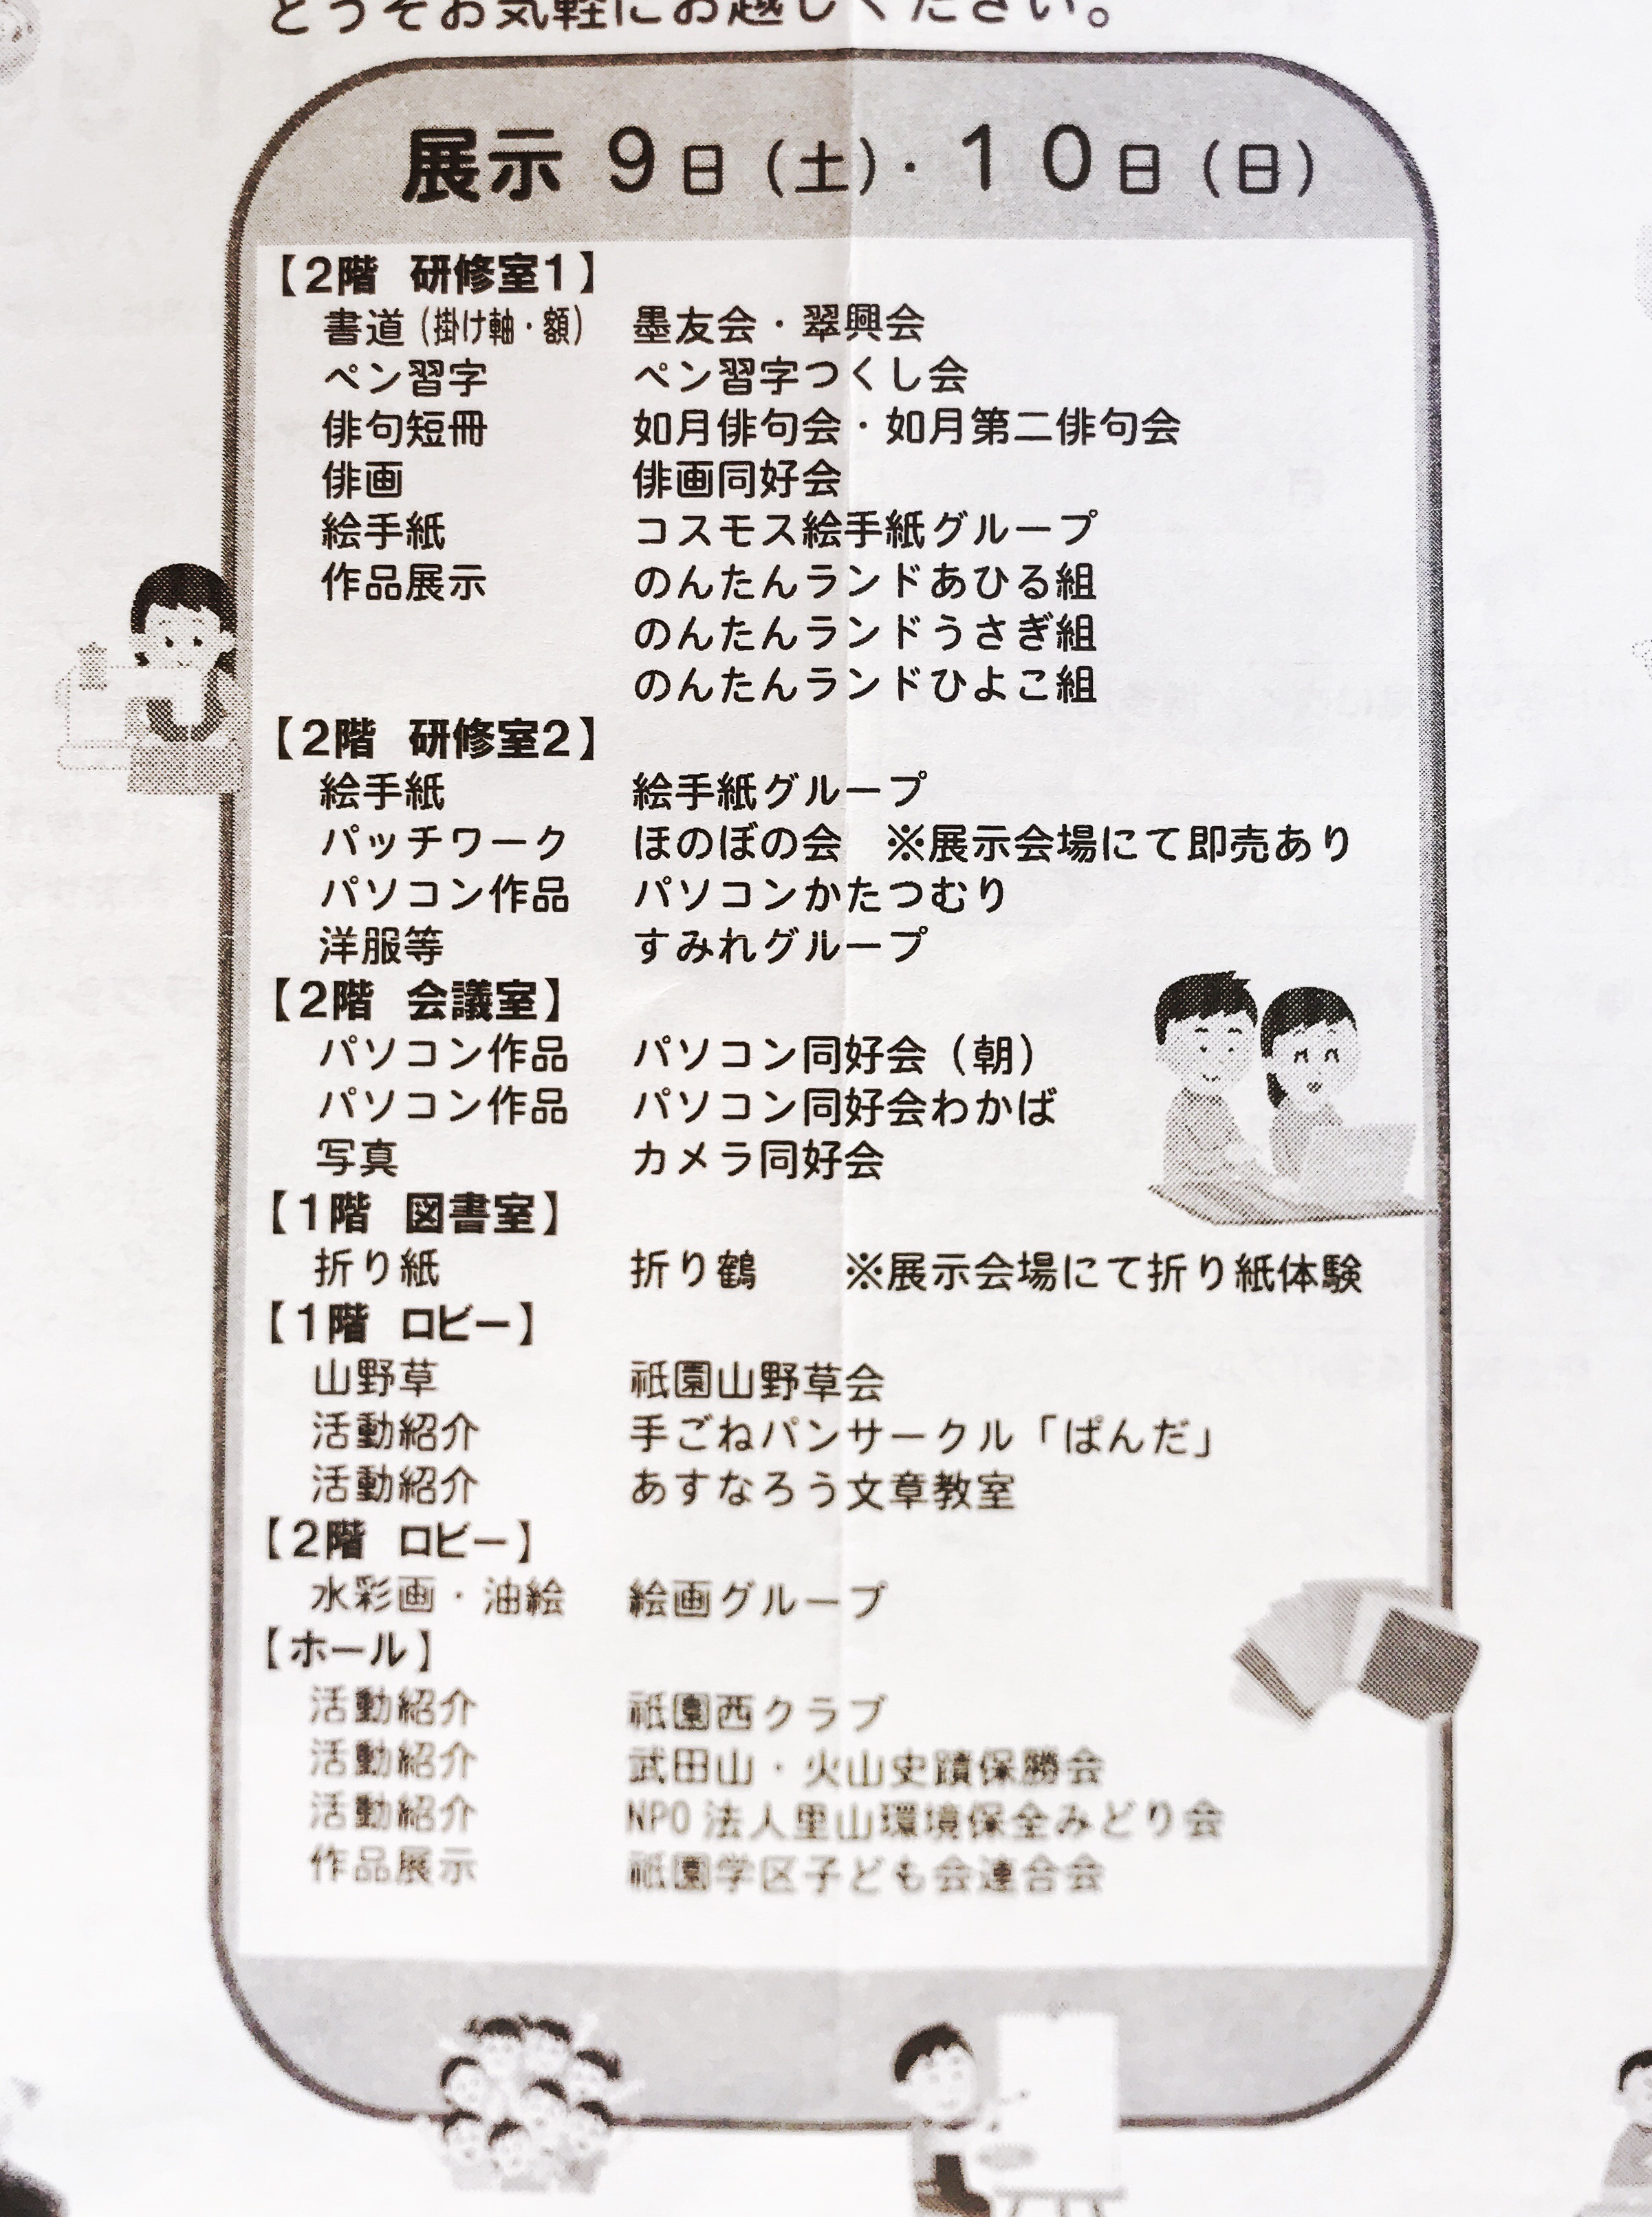 どうぞお気軽にお越しください。
展示 9日(土)・10日(日)
【2階 研修室1】
書道(掛け軸・額) 墨友会・翠興会
ペン習字 ペン習字つくし会
俳句短冊 如月俳句会・如月第二俳句会
俳画 俳画同好会
絵手紙 コスモス絵手紙グループ
作品展示 のんたんランドあひる組
のんたんランドうさぎ組
のんたんランドひよこ組
【2階 研修室2】
絵手紙 絵手紙グループ
パッチワーク ほのぼの会 ※展示会場にて即売あり
パソコン作品 パソコンかたつむり
洋服等 すみれグループ
【2階 会議室】
パソコン作品 パソコン同好会(朝)
パソコン作品 パソコン同好会わかば
写真 カメラ同好会
【1階 図書室】
折り紙 折り鶴 ※展示会場にて折り紙体験
【1階 ロビー】
山野草 祇園山野草会
活動紹介 手ごねパンサークル「ぱんだ」
活動紹介 あすなろう文章教室
【2階 ロビー】
水彩画・油絵 絵画グループ
【ホール】
活動紹介 祇園西クラブ
活動紹介 武田山・火山史蹟保勝会
活動紹介 NPO法人里山環境保全みどり会
作品展示 祇園学区子ども会連合会